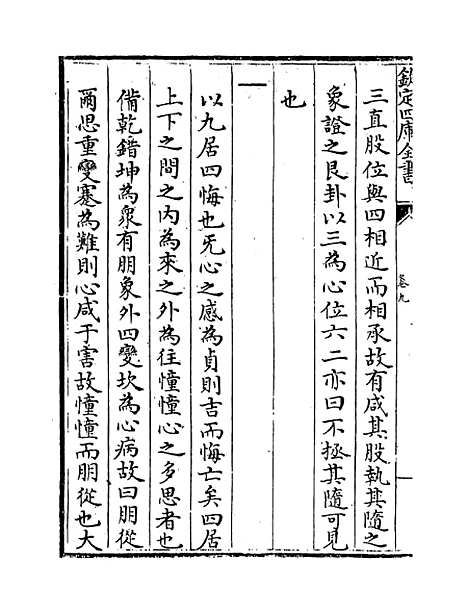 欽定四庫全書
卷九
三直股位與四相近而相承故有咸其股執其隨之
象證之艮卦以三為心位六二亦曰不拯其隨可見
也
一
以九居四悔也旡心之感為貞則吉而悔亡矣四居
上下之間之内為來之外為往憧憧心之多思者也
備乾錯坤為衆有朋象外四變坎為心病故曰朋從
爾思重變蹇為難則心咸于害故憧憧而朋從也大